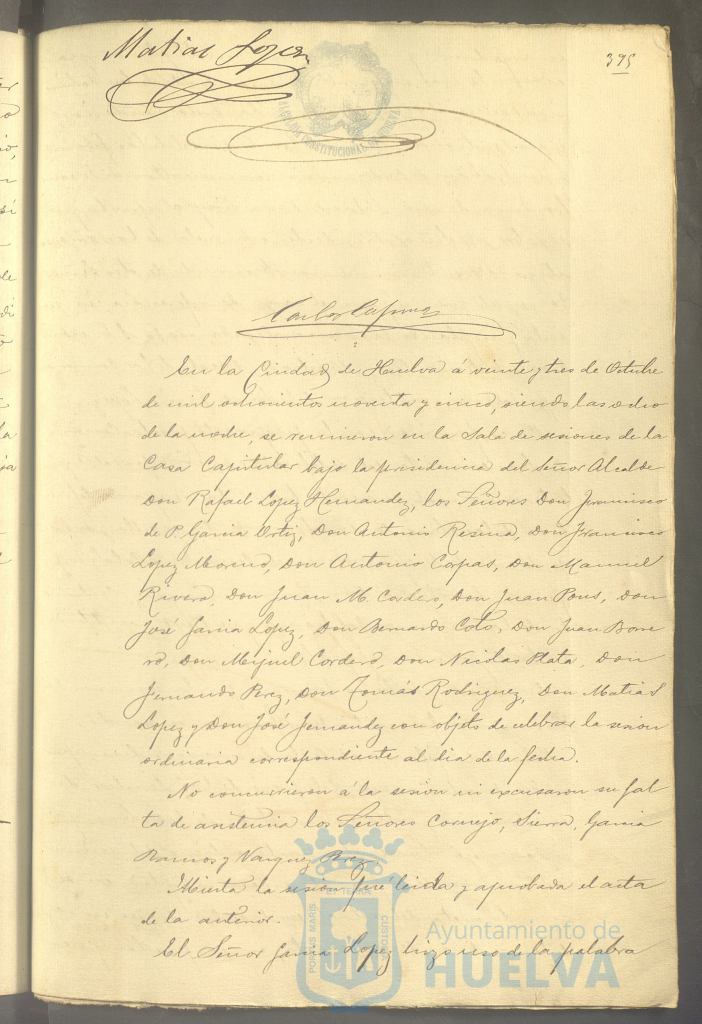 Matias Lopez
395
ALCALDIA CONSTITUCIONAL DE HUELVA
En la Ciudad de Huelva á veinte y tres de Octubre
de mil ochocientos noventa y cinco, siendo las ocho
de la noche, se reunieron en la Sala de sesiones de la
Casa Capitular bajo la presidencia del Señor Alcalde
Don Rafael Lopez Hernandez, los Señores Don Francisco
de P. Garcia Ortiz, Don Antonio Resina, Don Francisco
Lopez Moreno, Don Antonio Capas, Don Manuel
Rivera, Don Juan M. Cordero, Don Juan Pons, Don
José Garcia Lopez, Don Bernardo Coto, Don Juan Borre
ro, Don Miguel Cordero, Don Nicolas Plata, Don
Fernando Perez, Don Tomás Rodriguez, Don Matias
Lopez y Don José Fernandez con objeto de celebrar la sesion
ordinaria correspondiente al dia de la fecha.
No concurrieron á la sesion ni excusaron su fal
ta de asistencia los Señores Cornejo, Sierra, Garcia
Ramos y Vazquez Perez
Abierta la sesion fué leida y aprobada el acta
de la anterior.
El Señor Garcia Lopez hizo uso de la palabra
PORTUS MARIS ET TERRAE CUSTODIA
Ayuntamiento de
HUELVA